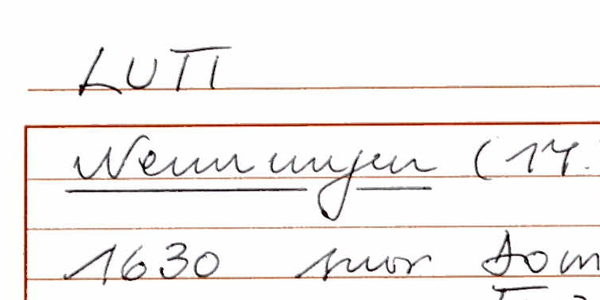 LUTT
Nennungen (14.
1630 nur Dom